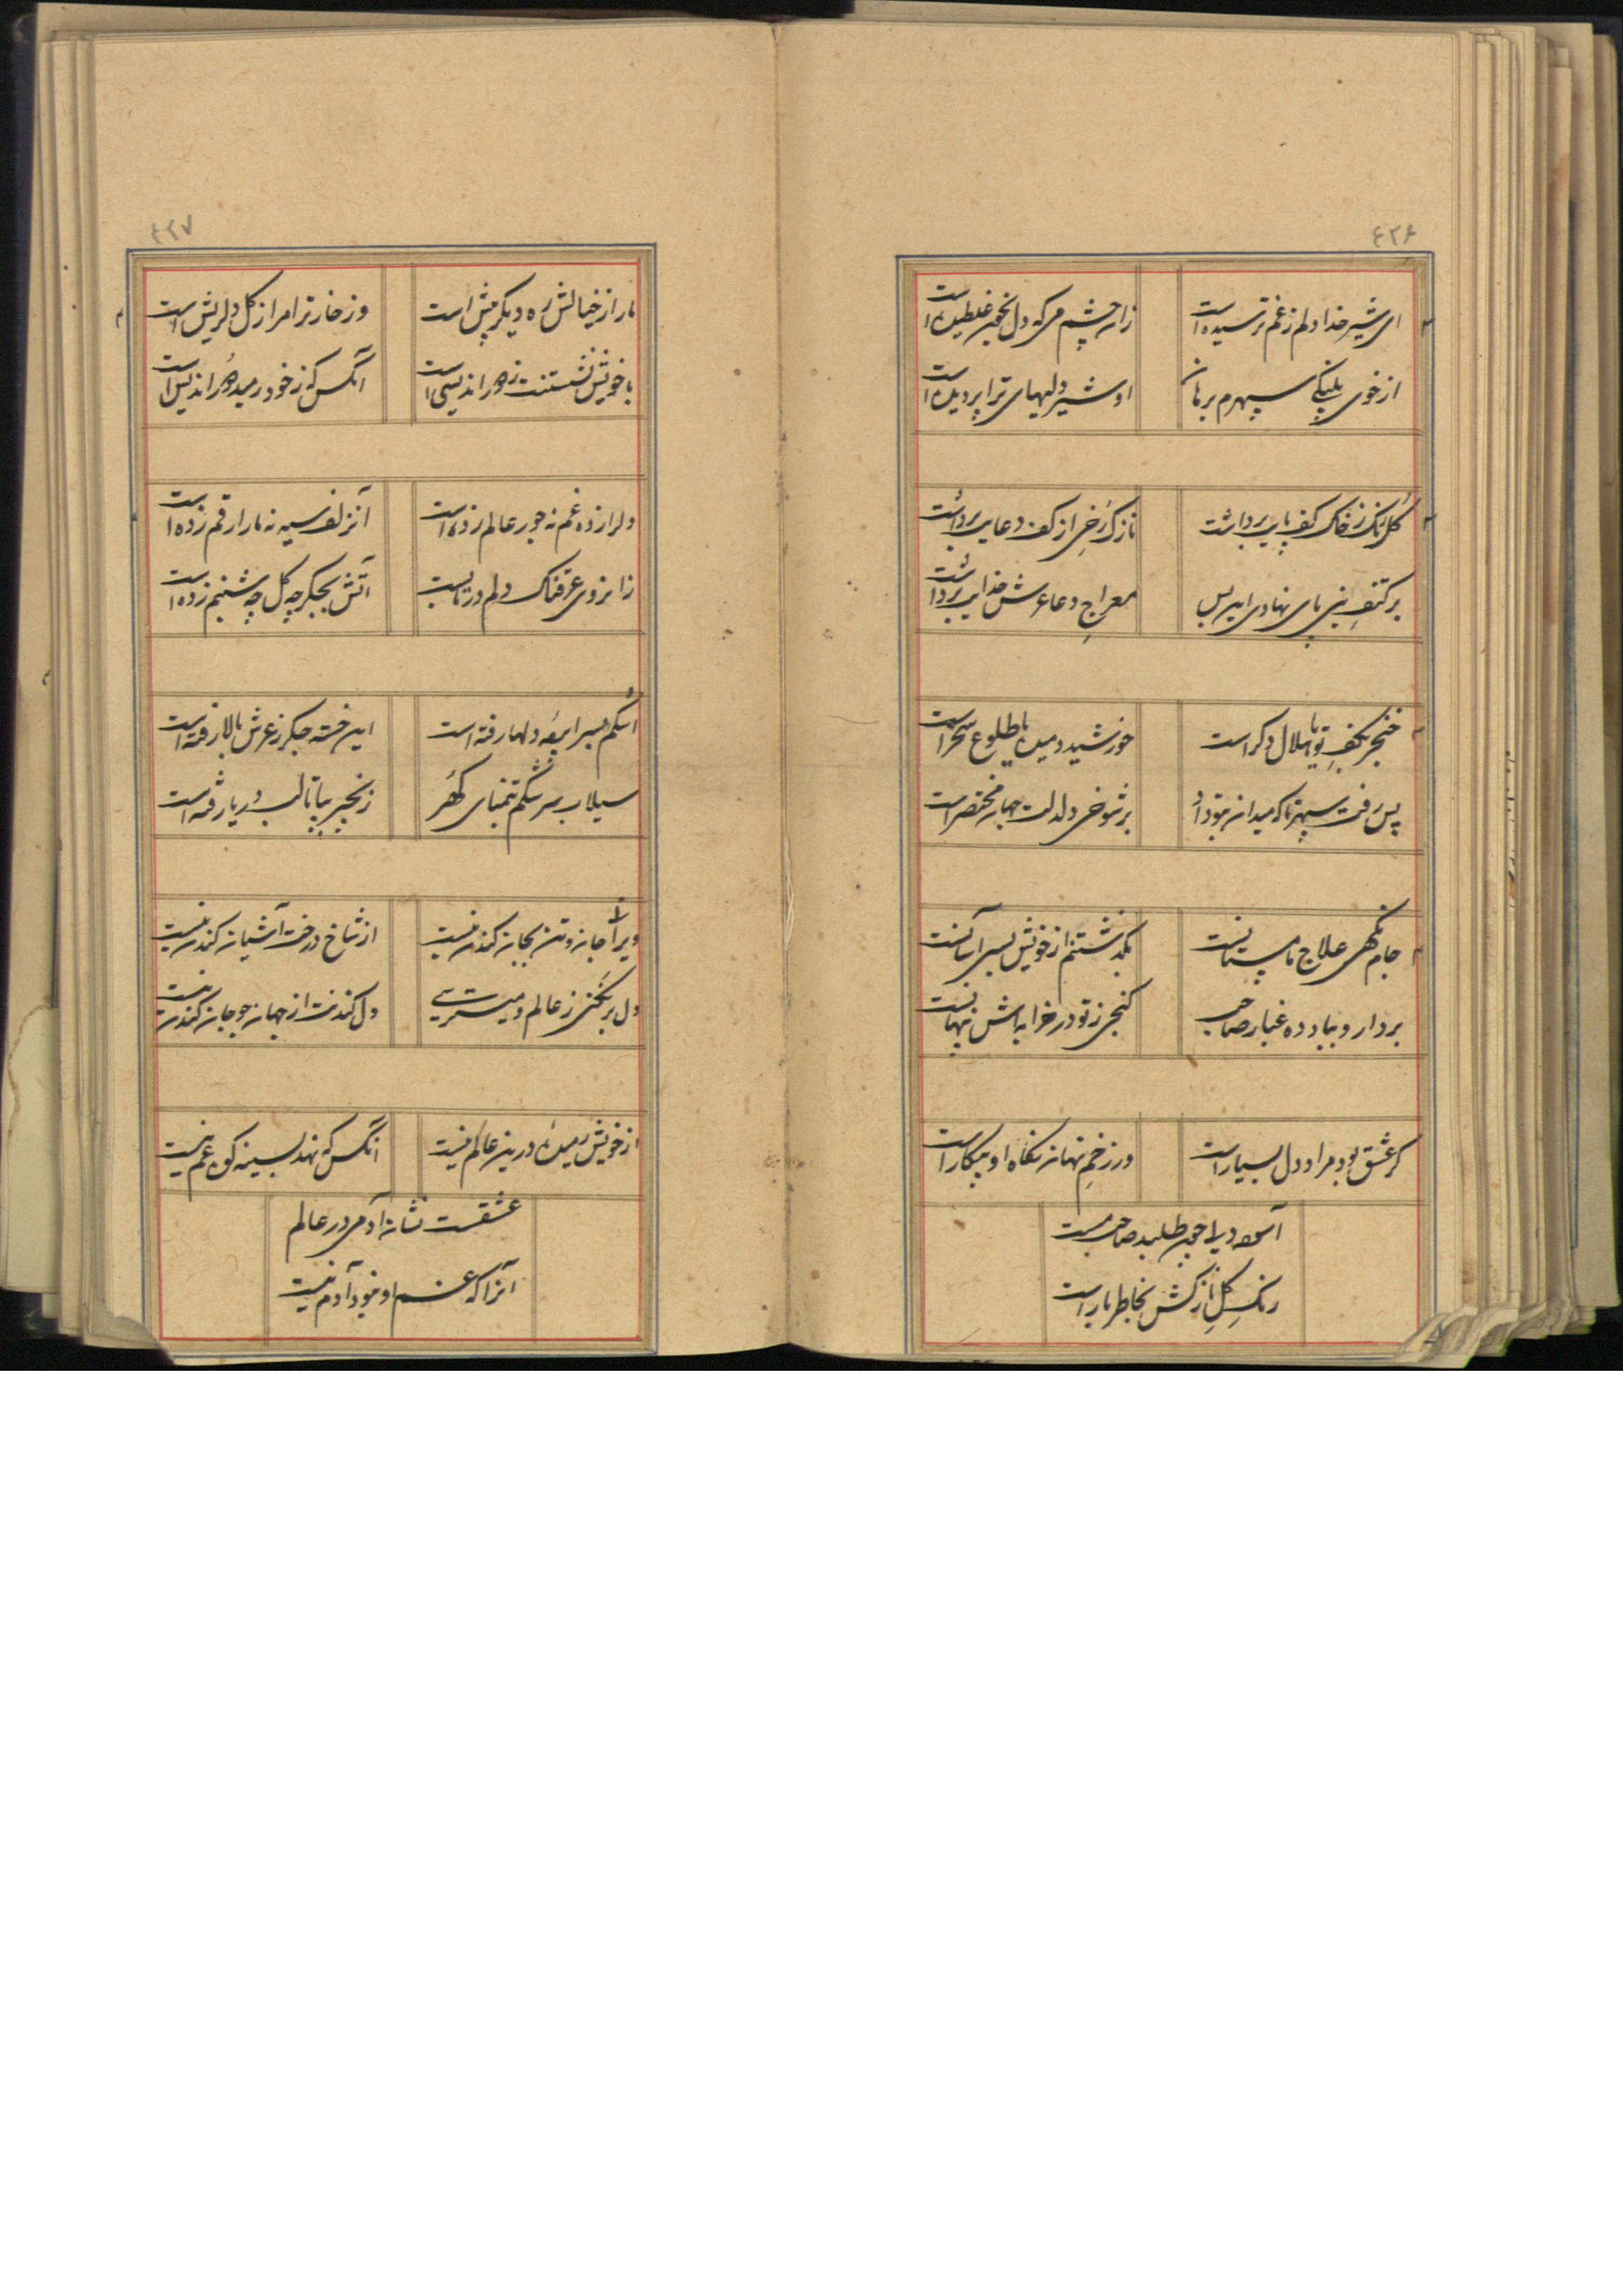 ٤٢٦
ای شیر خدا دلم ز غم ترسیده است
زان چشم که دل بخون غلطیده است
از خوی پلنگی سپهرم برهان
ای شیر دلیهای ترا پر دیده است
گل رنگ ز خاک کف پایی برداشت
نازک رخی از کف دعایی برداشت
بر کتف نبی پای نهادی
معراج دعا عرش خدایی برداشت
خنجر بکف تو یا هلال دگر است
خورشید دمیده یا طلوع سحر است
پس رفت سپهر تا که میدان بتو داد
بر شوخی دلدلت جهان مختصر است
جام نگهی علاج ما مستانست
بگذشتنم از خویش بسی آسانست
بردار و بباد ده غبار صاحب
گنجی ز تو در خرابه‌اش پنهانست
گر عشق بود مراد دل بسیار است
ور زخم نهان نگاه او پیکار است
آسوده دلی چون طلبد صاحب نیست
رنگ گل نازکش بخاطر بار است
٤٢٧
ما را ز خیالش ره دیگر پیش است
وز خار ترا مرا ز گل دل ریش است
با خویش نشستنت ز دور اندیشی است
آنکس که ز خود رمید دور اندیش است
دلرا نه ده غم نه جور عالم زده است
آن زلف سیه نه مار ارقم زده است
زان روی عرقناک دلم در تابست
آتش بجگر چه گل چه شبنم زده است
اشکم بسر دلها رفته است
این خسته جگر ز عرش بالا رفته است
سیلاب سرشکم بتمنای گهر
زنجیر بپا تا لب دریا رفته است
ویرا جان و تن بجان کندن نیست
از شاخ درخت آشیان کندن نیست
دل بر نکنی ز عالم و میترسی
دل کندنت از جهان چو جان کندن نیست
از خویش رمیده درین عالم نیست
آنکس که نهد بسینه کوه غم نیست
عشقست نشان آدمی در عالم
آنرا که غم او نبود آدم نیست